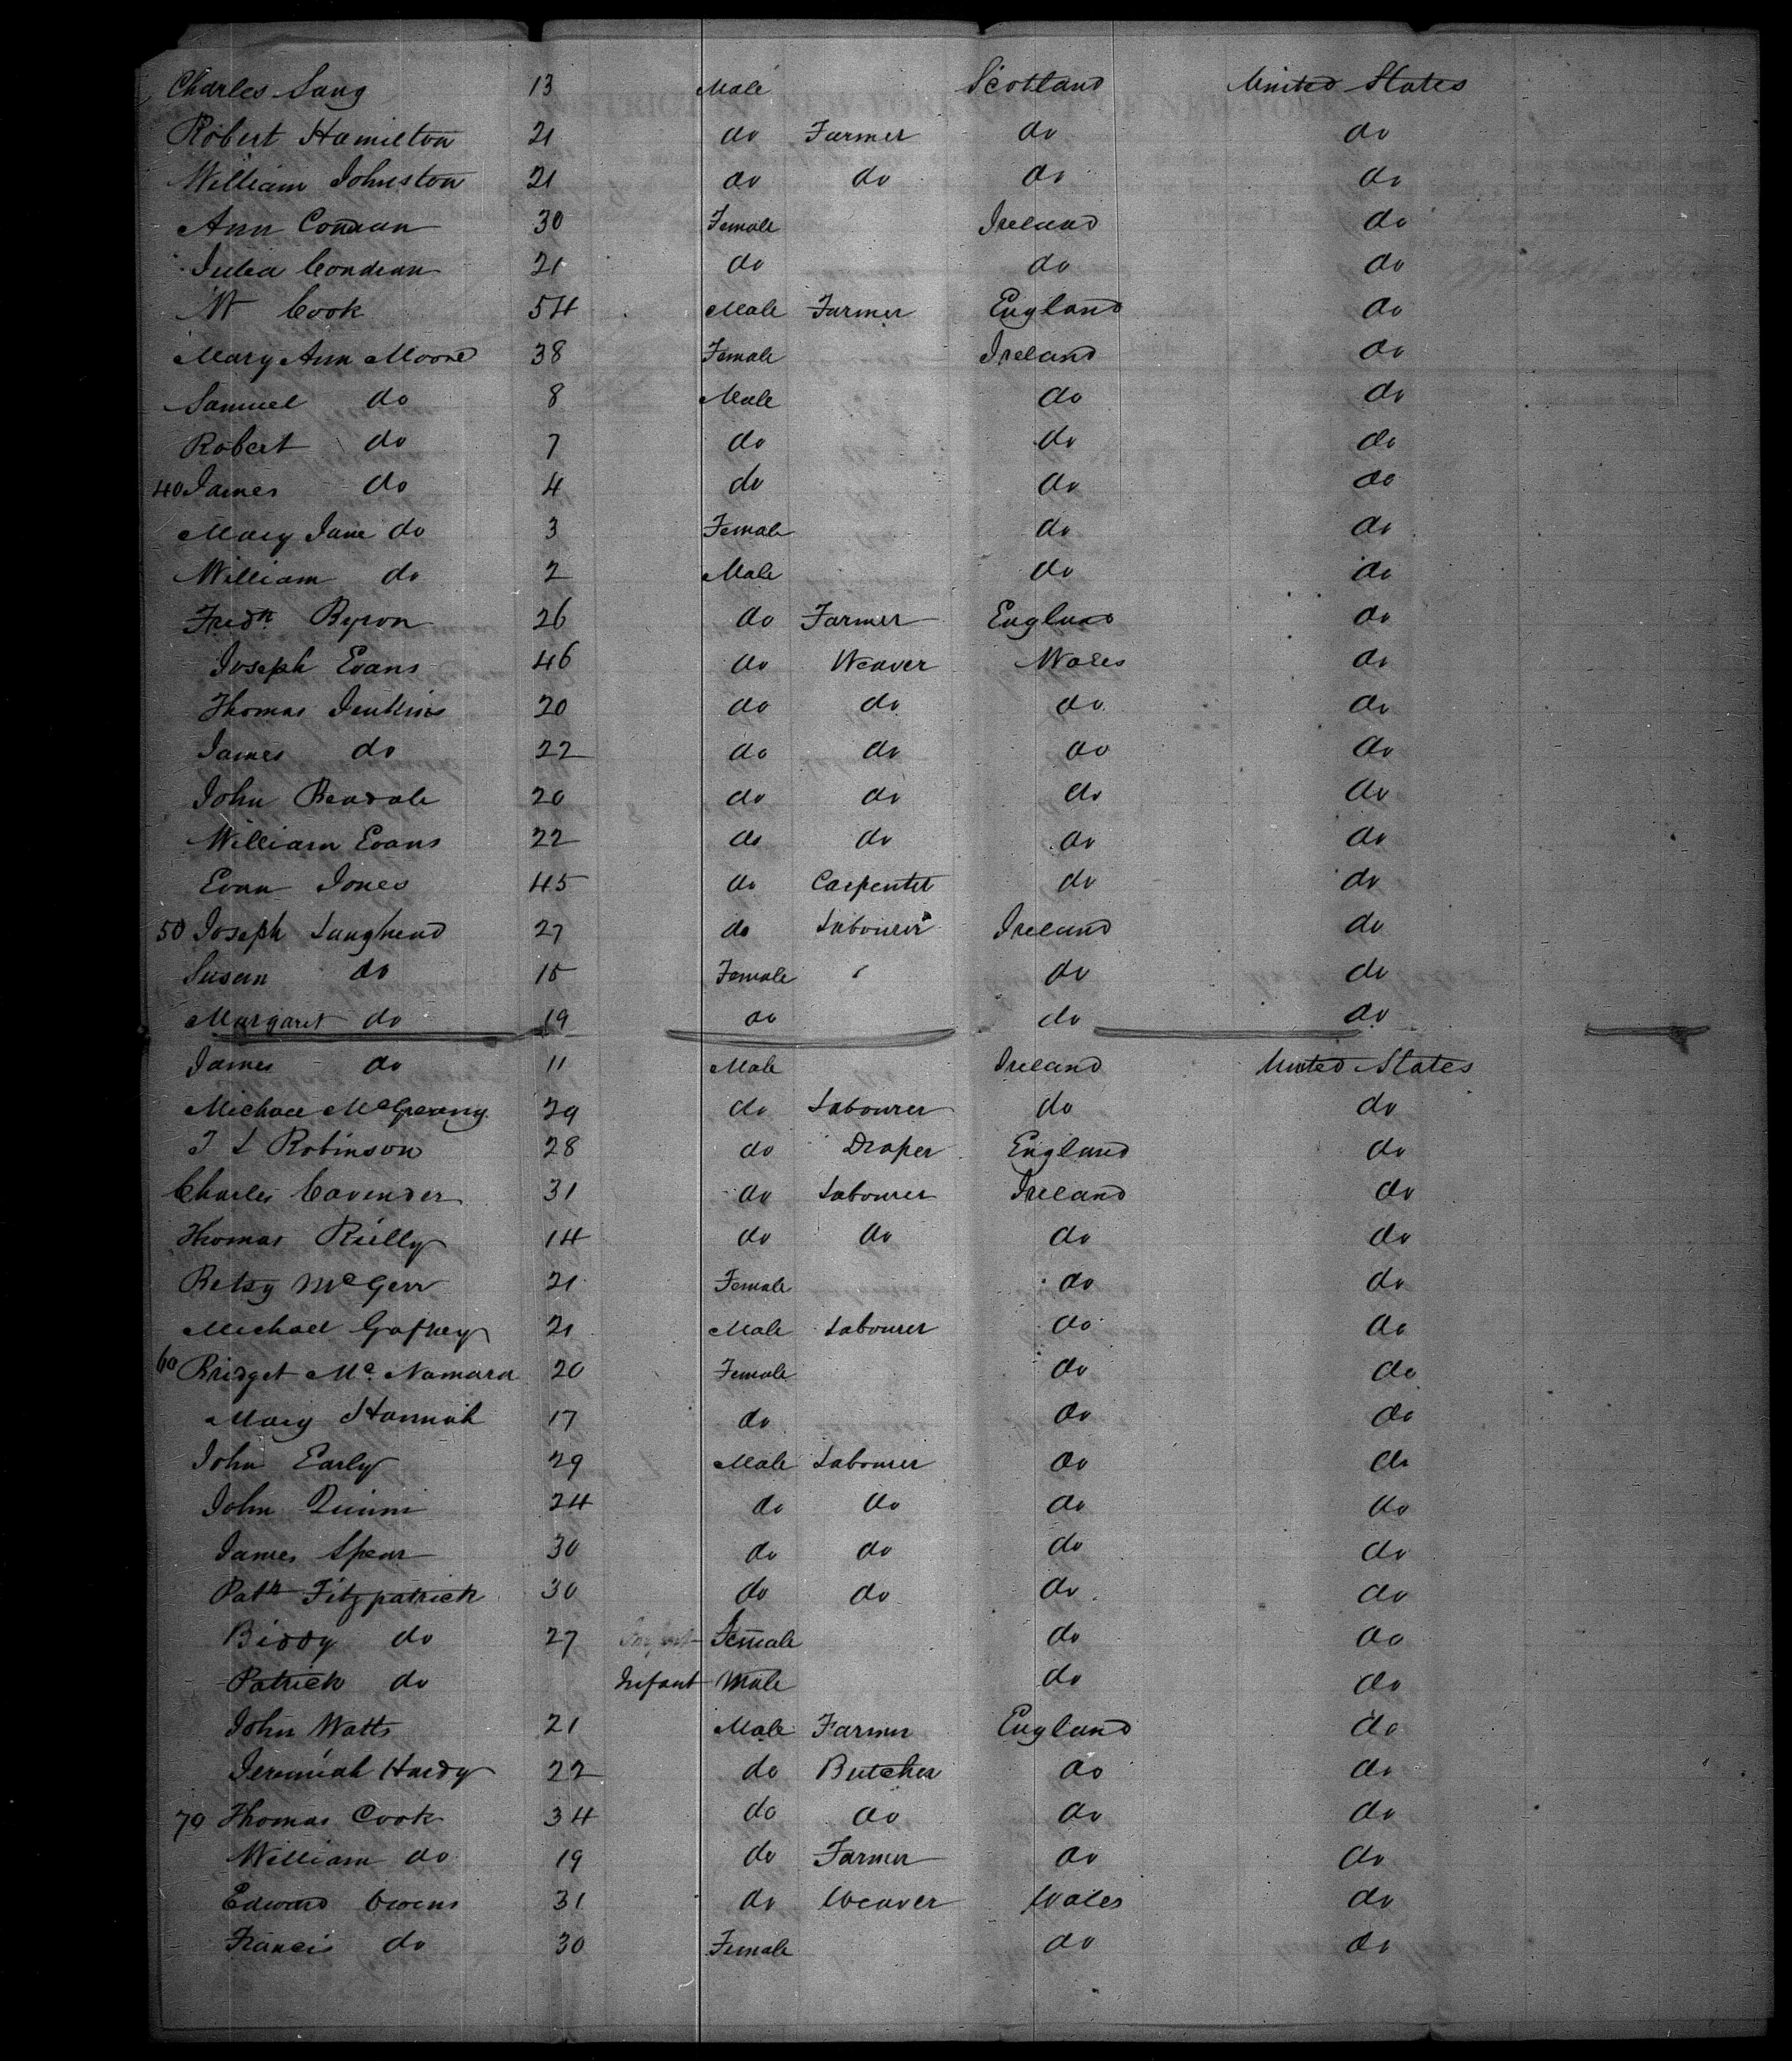 Charles Lang 13 Male Scotland United States
Robert Hamilton 21 do Farmer do do
William Johnston 21 do do do do
Ann Condran 30 Female Ireland do
Julia Condran 21 do do do
W Cook 54 Male Farmer England do
Mary Ann Moore 38 Female Ireland do
Samuel do 8 Male do do
Robert do 7 do do do
40 James do 4 do do do
Mary Jane do 3 Female do do
William do 2 Male do do
Fredk Byron 26 do Farmer England do
Joseph Evans 46 do Weaver Wales do
Thomas Jenkins 20 do do do do
James do 22 do do do do
John Beadale 20 do do do do
William Evans 22 do do do do
Evan Jones 45 do Carpenter do do
50 Joseph Laughead 27 do Labourer Ireland do
Susan do 15 Female do do
Margaret do 19 do do do
James do 11 Male Ireland United States
Michael 29 do Labourer do do
J L Robinson 28 do Draper England do
Charles Cavender 31 do Labourer Ireland do
Thomas Rielly 14 do do do do
Betsy McGerr 21 Female do do
Michael Gafney 21 Male Labourer do do
60 Bridget Mc Namara 20 Female do do
Mary Hannah 17 do do do
John Early 29 Male Labourer do do
John Quinn 24 do do do do
James Spear 30 do do do do
Patk Fitzpatrick 30 do do do do
Biddy do 27 Female do do
Patrick do Infant Male do do
John Watts 21 Male Farmer England do
Jeremiah Hardy 22 do Butcher do do
70 Thomas Cook 34 do do do do
William do 19 do Farmer do do
Edward Owens 31 do Weaver Wales do
Francis do 30 Female do do